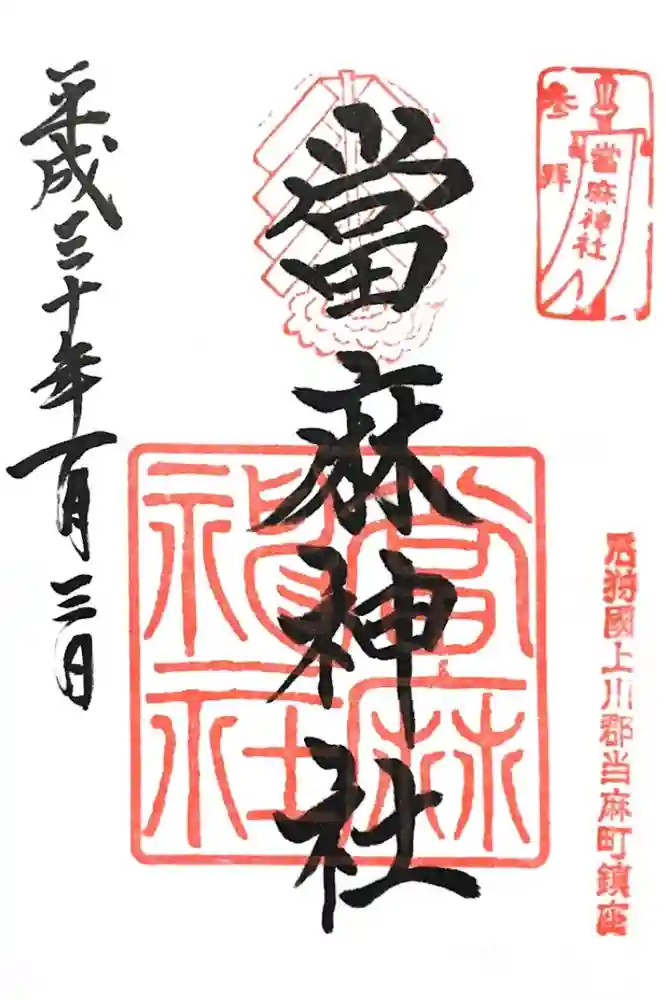 参拝
當麻神社
石狩國上川郡当麻町鎮座
當麻神社
當麻神社
平成三十年一月三日